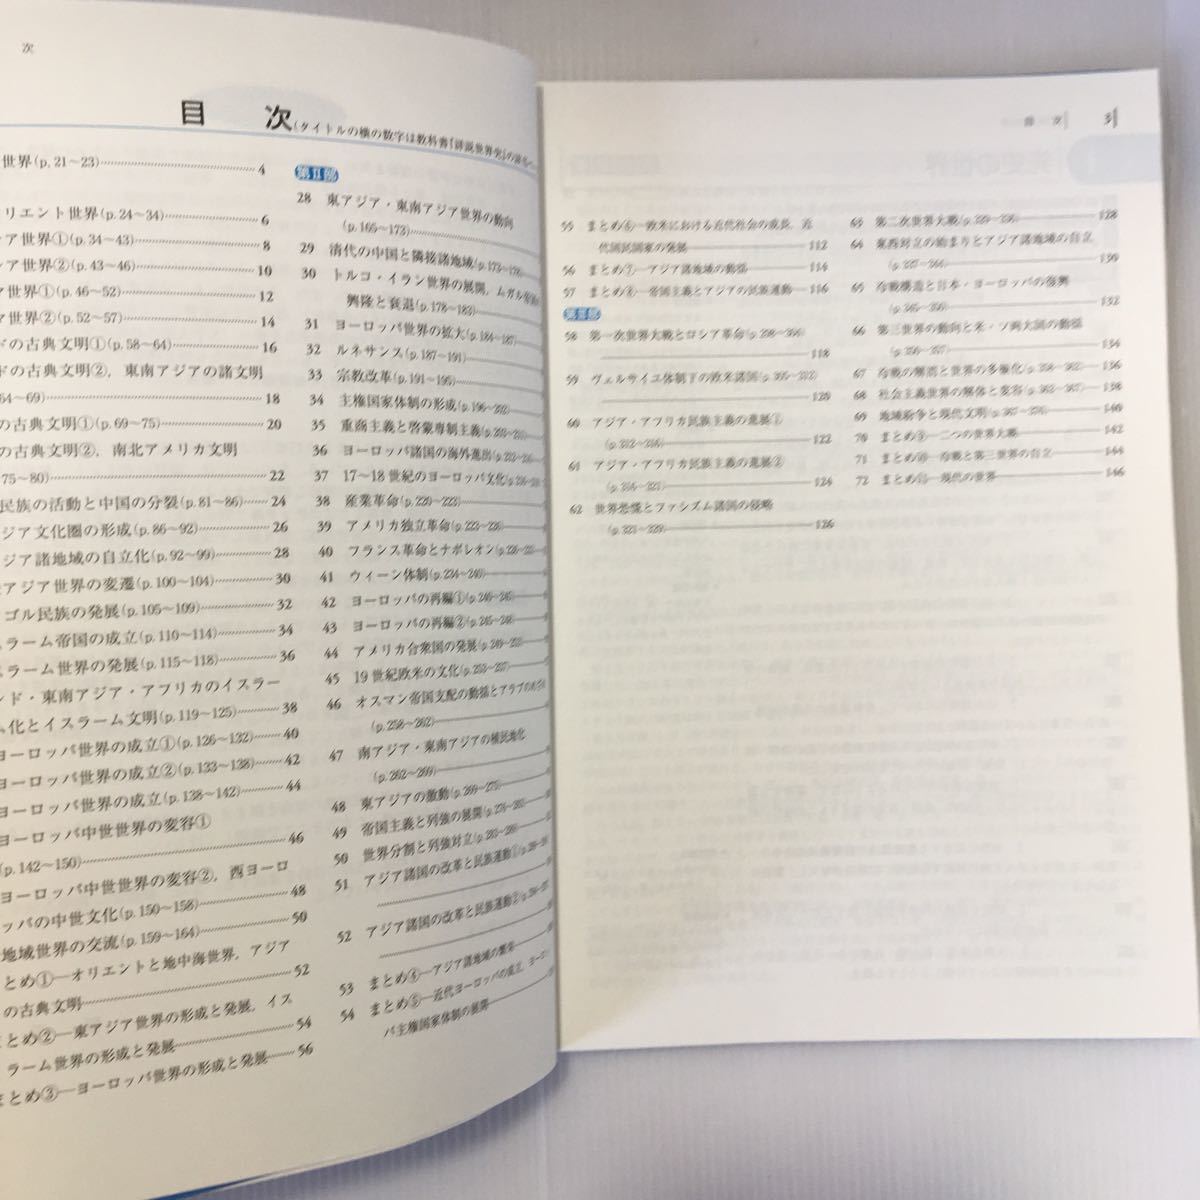 次
目 次(タイトルの横の数字は教科書『詳説世界史』の
世界(p.21〜23) 4
リエント世界(p.24〜34) 6
ア世界①(p.34〜43) 8
ア世界②(p.43〜46) 10
世界①(p.46〜52) 12
世界②(p.52〜57) 14
ドの古典文明①(p.58〜64) 16
ドの古典文明②，東南アジアの諸文明
64〜69) 18
の古典文明①(p.69〜75) 20
の古典文明②，南北アメリカ文明
75〜80) 22
民族の活動と中国の分裂(p.81〜86) 24
ジア文化圏の形成(p.86〜92) 26
ジア諸地域の自立化(p.92〜99) 28
アジア世界の変遷(p.100〜104) 30
ゴル民族の発展(p.105〜109) 32
ラーム帝国の成立(p.110〜114) 34
ラーム世界の発展(p.115〜118) 36
ンド・東南アジア・アフリカのイスラー
ム化とイスラーム文明(p.119〜125) 38
ヨーロッパ世界の成立①(p.126〜132) 40
ヨーロッパ世界の成立②(p.133〜138) 42
ヨーロッパ世界の成立(p.138〜142) 44
ヨーロッパ中世世界の変容①
(p.142〜150) 46
ヨーロッパ中世世界の変容②，西ヨーロ
ッパの中世文化(p.150〜158) 48
地域世界の交流(p.159〜164) 50
とめ①―オリエントと地中海世界，アジア
の古典文明 52
とめ②―東アジア世界の形成と発展，イス
ラーム世界の形成と発展 54
まとめ③―ヨーロッパ世界の形成と発展 56
第Ⅱ部
28 東アジア・東南アジア世界の動向
(p.165〜173)
29 清代の中国と隣接諸地域(p.173〜178)
30 トルコ・イラン世界の展開，ムガル帝国の
興隆と衰退(p.178〜183)
31 ヨーロッパ世界の拡大(p.184〜187)
32 ルネサンス(p.187〜191)
33 宗教改革(p.191〜195)
34 主権国家体制の形成(p.196〜202)
35 重商主義と啓蒙専制主義(p.203〜
36 ヨーロッパ諸国の海外進出(p.212〜
37 17〜18世紀のヨーロッパ文化(p.216〜
38 産業革命(p.220〜223)
39 アメリカ独立革命(p.223〜226)
40 フランス革命とナポレオン(p.226〜
41 ウィーン体制(p.234〜240)
42 ヨーロッパの再編①(p.240〜245)
43 ヨーロッパの再編②(p.245〜248)
44 アメリカ合衆国の発展(p.249〜252)
45 19世紀欧米の文化(p.253〜257)
46 オスマン帝国支配の動揺とアラブのめざめ
(p.258〜262)
47 南アジア・東南アジアの植民地化
(p.262〜269)
48 東アジアの激動(p.269〜275)
49 帝国主義と列強の展開(p.276〜
50 世界分割と列強対立(p.283〜
51 アジア諸国の改革と民族運動①(p.
52 アジア諸国の改革と民族運動②(p.
53 まとめ④―アジア諸地域の繁栄
54 まとめ⑤―近代ヨーロッパの成立，ヨーロッ
パ主権国家体制の展開
目 次 3
55 まとめ⑥―欧米における近代社会の成長，近
代国民国家の発展 112
56 まとめ⑦―アジア諸地域の動揺 114
57 まとめ⑧―帝国主義とアジアの民族運動 116
第Ⅲ部
58 第一次世界大戦とロシア革命(p.298〜
118
59 ヴェルサイユ体制下の欧米諸国(p.305〜312)
120
60 アジア・アフリカ民族主義の進展①
(p.312〜 122
61 アジア・アフリカ民族主義の進展②
124
62 世界恐慌とファシズム諸国の侵略
126
63 第二次世界大戦 128
64 東西対立の始まりとアジア諸地域の自立
130
65 冷戦構造と日本・ヨーロッパの復興
132
66 第三世界の動向と米・ソ両大国の動揺
134
67 冷戦の解消と世界の多極化(p.358〜362) 136
68 社会主義世界の解体と変容(p.362〜367) 138
69 地域紛争と現代文明(p.367〜 140
70 まとめ⑨―二つの世界大戦 142
71 まとめ⑩―冷戦と第三世界の自立 144
72 まとめ⑪―現代の世界 146